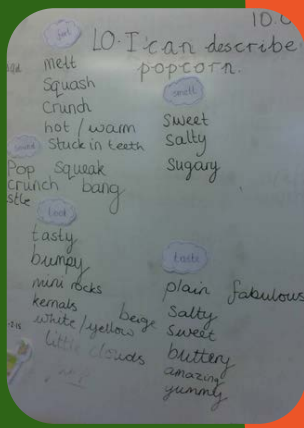 10.0
LO. I can describe
popcorn.
feel
melt
Squash
Crunch
hot / warm
Stuck in teeth
smell
sweet
salty
sugary
sound
Pop Squeak
crunch bang
stle
look
tasty
bumpy
mini rocks
kernals beige
white / yellow
little clouds
taste
plain fabulous
Salty
Sweet
buttery
amazing
yummy